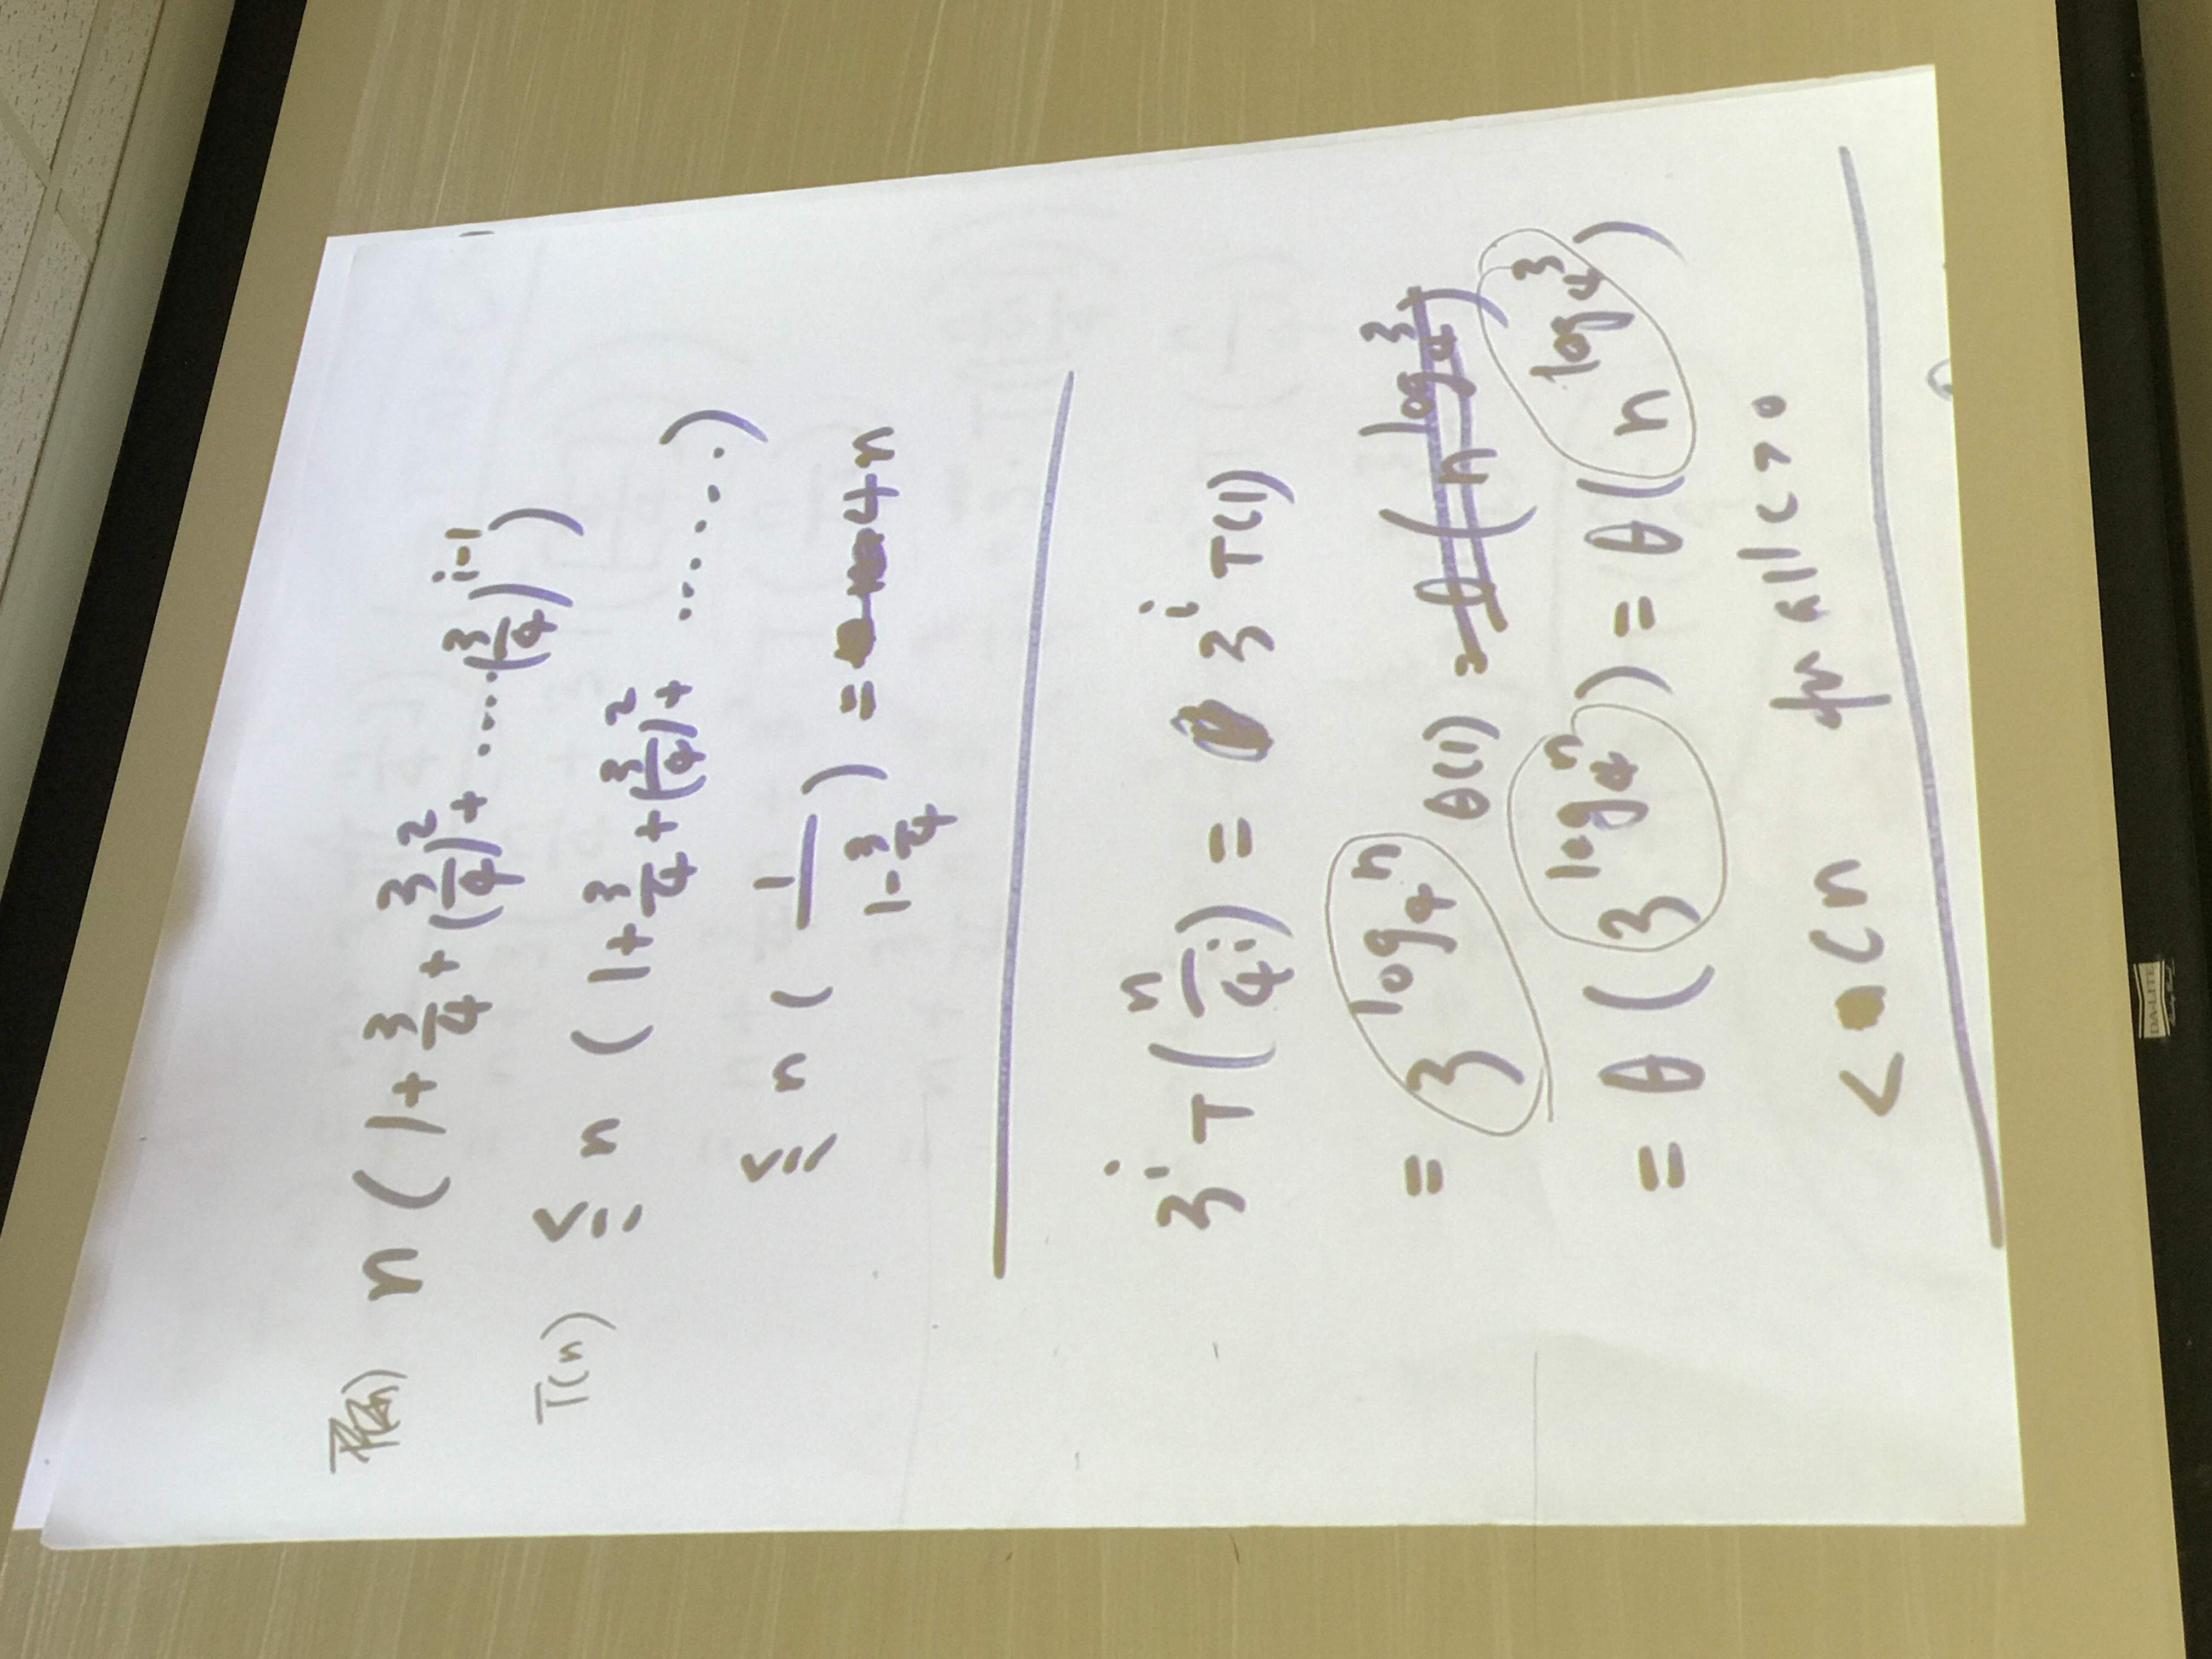 n ( 1 + 3/4 + (3/4)² + ..... (3/4)^(i-1) )
T(n) ≤ n ( 1 + 3/4 + (3/4)² + ...... )
≤ n ( 1/(1 - 3/4) ) = 4n
3^i T( n/4^i ) = 3^i T(1)
= 3^(log₄ n) θ(1) = θ ( n^(log₄ 3) )
= θ ( 3^(log₄ n) ) = θ ( n^(log₄ 3) )
< c n for all c > 0
DA-LITE